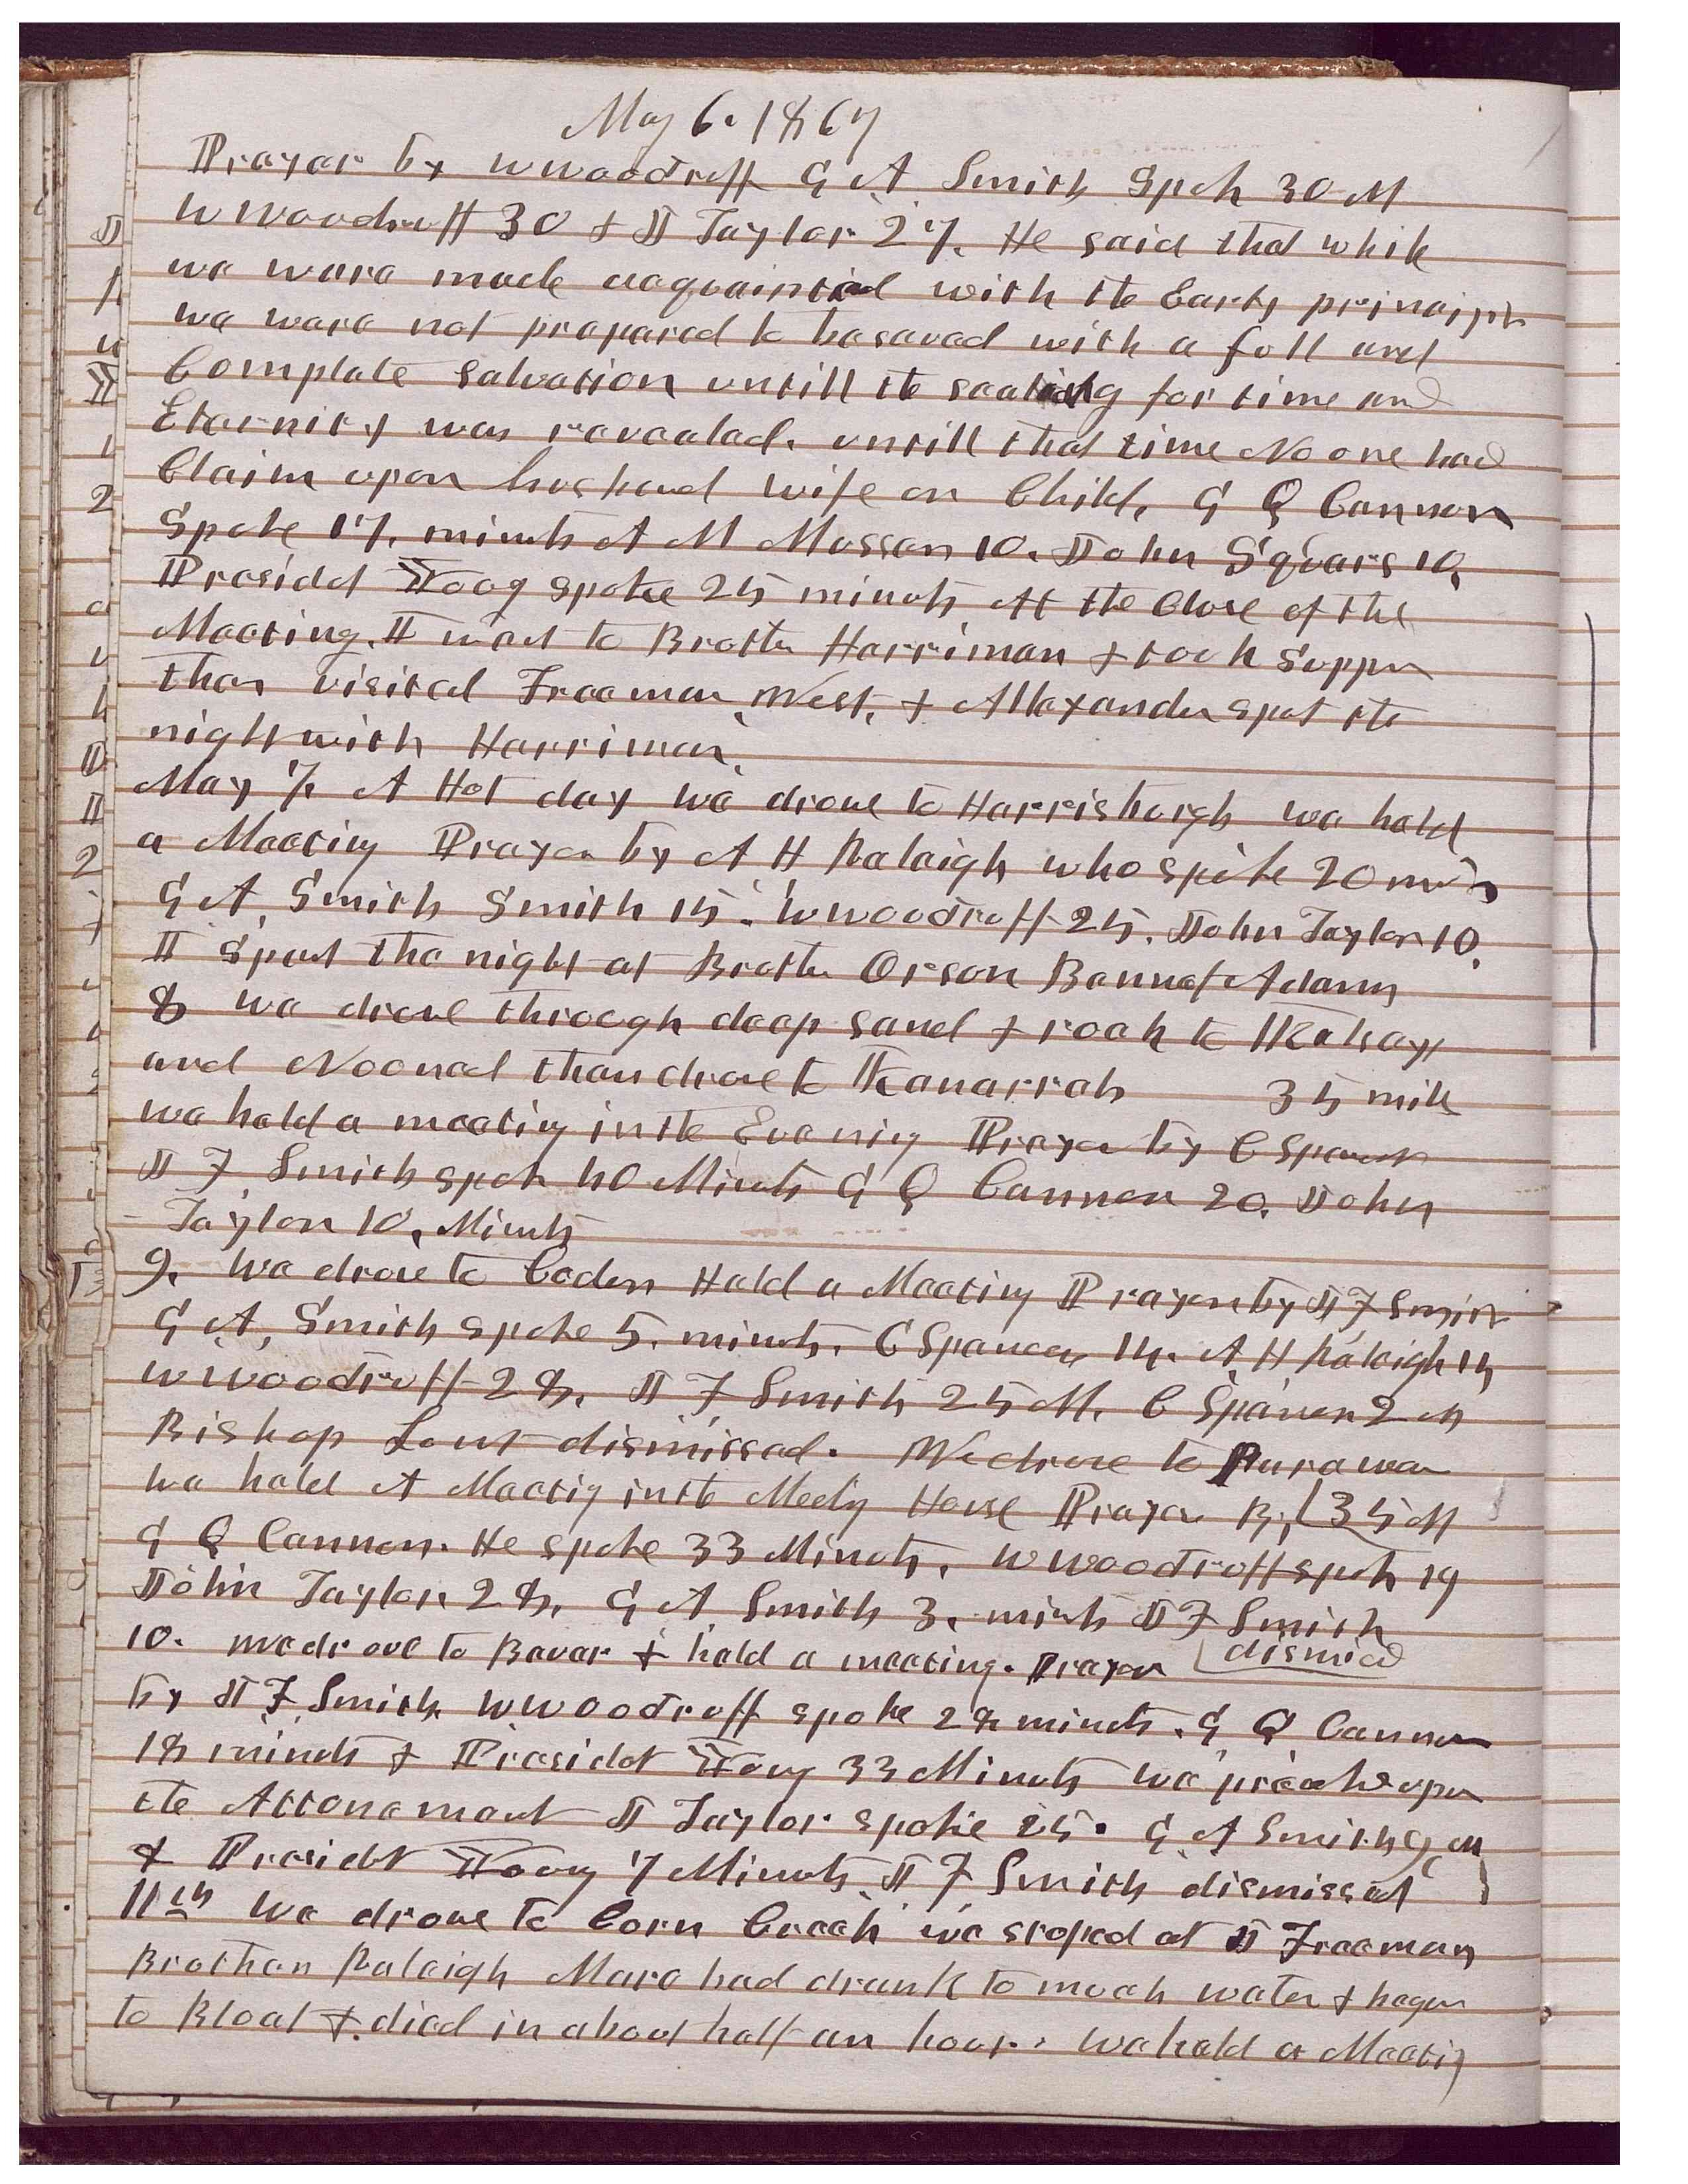 May 6. 1867
Prayer by W Woodruff G A Smith Spok 30 M
W Woodruff 30 & J Taylor 27. He said that while
we ware made acquainted with the Early principls
we ware not prepared to be saved with a full and
Complete salvation untill the sealing for time and
Eternity was revealed. untill that time No one had
Claim upon husband wife or Child, G Q Cannon
Spoke 17, minuts A M Musser 10. John Squars 10,
Presidet Young spoke 25 minuts At the Close of the
Meeting. I went to Brother Harriman & took Supper
then visited Freeman, West, & Allexander spet the
night with Harriman.
May 7. A Hot day we drove to Harrisburgh we held
a Meeting Prayer by A H Raleigh who spoke 20 mits
G A, Smith Smith 15. W Woodruff 25. John Taylor 10.
I Spent the night at Brother Orson Bennet Adams
8 we drove through deep sand & rock to Kelsays
and Nooned then drove to Kanarrah 35 mile
we held a meeting in the Evening Prayer by C Spencer
J F Smith spok 40 Minuts G Q Cannon 20. John
Taylor 10, Minuts
9. We drove to Ceder Held a Meeting Prayer by J F Smith
G A, Smith spoke 5. minuts. C Spencer 14. A H Raleigh 15
W Woodruff 28, J F Smith 25 M, C Spencer 2 M
Bishop Lunt dismissed. We drove to Parawan
we held A Meetig in the Meetig House Prayer By 35 M
G Q Cannon. He spoke 33 Minuts, W Woodruff spok 19
John Taylor 28, G A Smith 3, minuts J F Smith
10. We drove to Bever & held a meeting. Prayer dismissed
by J F Smith W Woodruff spoke 28 minuts. G Q Cannon
18 minuts & Presidet Young 33 Minuts we preached upon
the Attonement J Taylor spoke 25. G A Smith 9 M
& Presidet Young 7 Minuts J F Smith dismissed
11th We drove to Corn Creek we stoped at J Freemans
Brother Raleigh Mare had drunk to much water & began
to Bloat & died in about half an hour. We held a Meetig